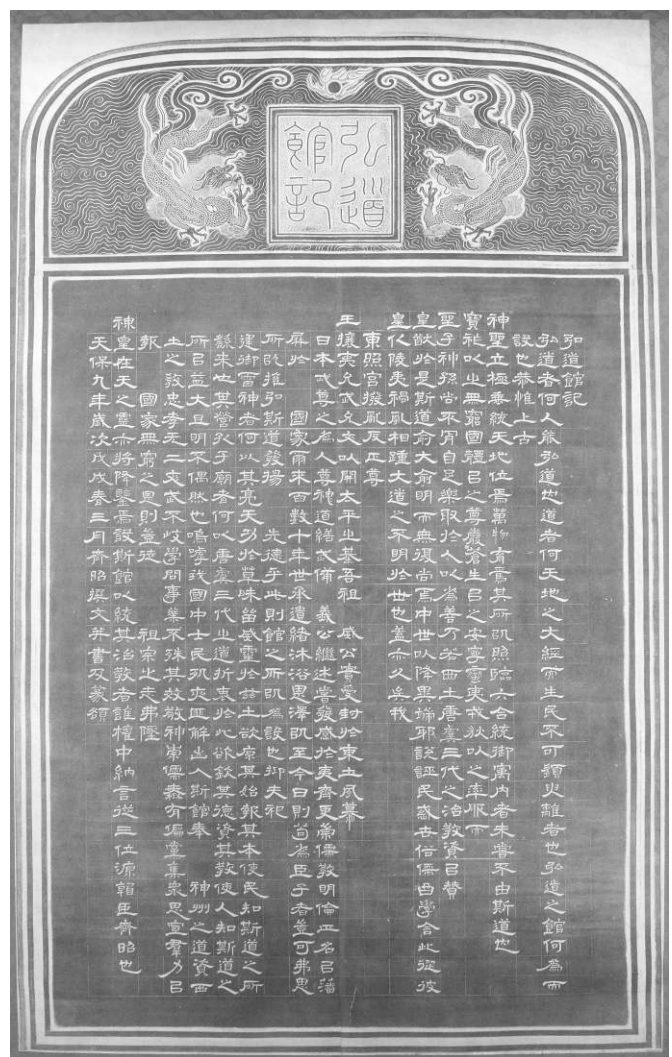 弘道
館記
弘道館記
弘道者何人能弘道也道者何天地之大經而生民不可須臾離者也弘道之館何爲而
設也恭惟上古
神聖立極垂統天地位焉萬物育焉其所以照臨六合統御寓內者未嘗不由斯道也
寶祚以之無窮國體以之尊嚴蒼生以之安寧蠻夷戎狄以之率服而
聖子神孫尚不肯自足樂取於人以爲善乃若西土唐虞三代之治教資以贊
皇猷於是斯道愈大愈明而無復尚焉中世以降異端邪說誣民惑世俗儒曲學舍此從彼
皇化陵夷禍亂相踵大道之不明於世也蓋亦久矣我
東照宮撥亂反正尊
王攘夷允武允文以開太平之基吾祖 威公實受封於東土夙慕
日本武尊之爲人尊神道繕武備 義公繼述嘗發感於夷齊更崇儒教明倫正名以藩
屏於 國家爾來百數十年世承遺緒沐浴恩澤以至今日則苟爲臣子者豈可弗思
所以推弘斯道發揚 先德乎此則館之所以爲設也抑夫祀
建御雷神者何以其亮天功於草昧留威靈於茲土欲原其始報其本使民知斯道之所
繇來也其營孔子廟者何以唐虞三代之道折衷於此欲欽其德資其教使人知斯道之
所以益大且明不偶然也嗚呼我國中士民夙夜匪解出入斯館奉 神州之道資西
土之教忠孝无二文武不岐學問事業不殊其效敬神崇儒無有偏黨集衆思宣羣力以
報 國家無窮之恩則豈徒 祖宗之志弗墜
神皇在天之靈亦將降鑒焉設斯館以統其治教者誰權中納言從三位源朝臣齊昭也
天保九年歲次戊戌春三月齊昭撰文并書及篆額